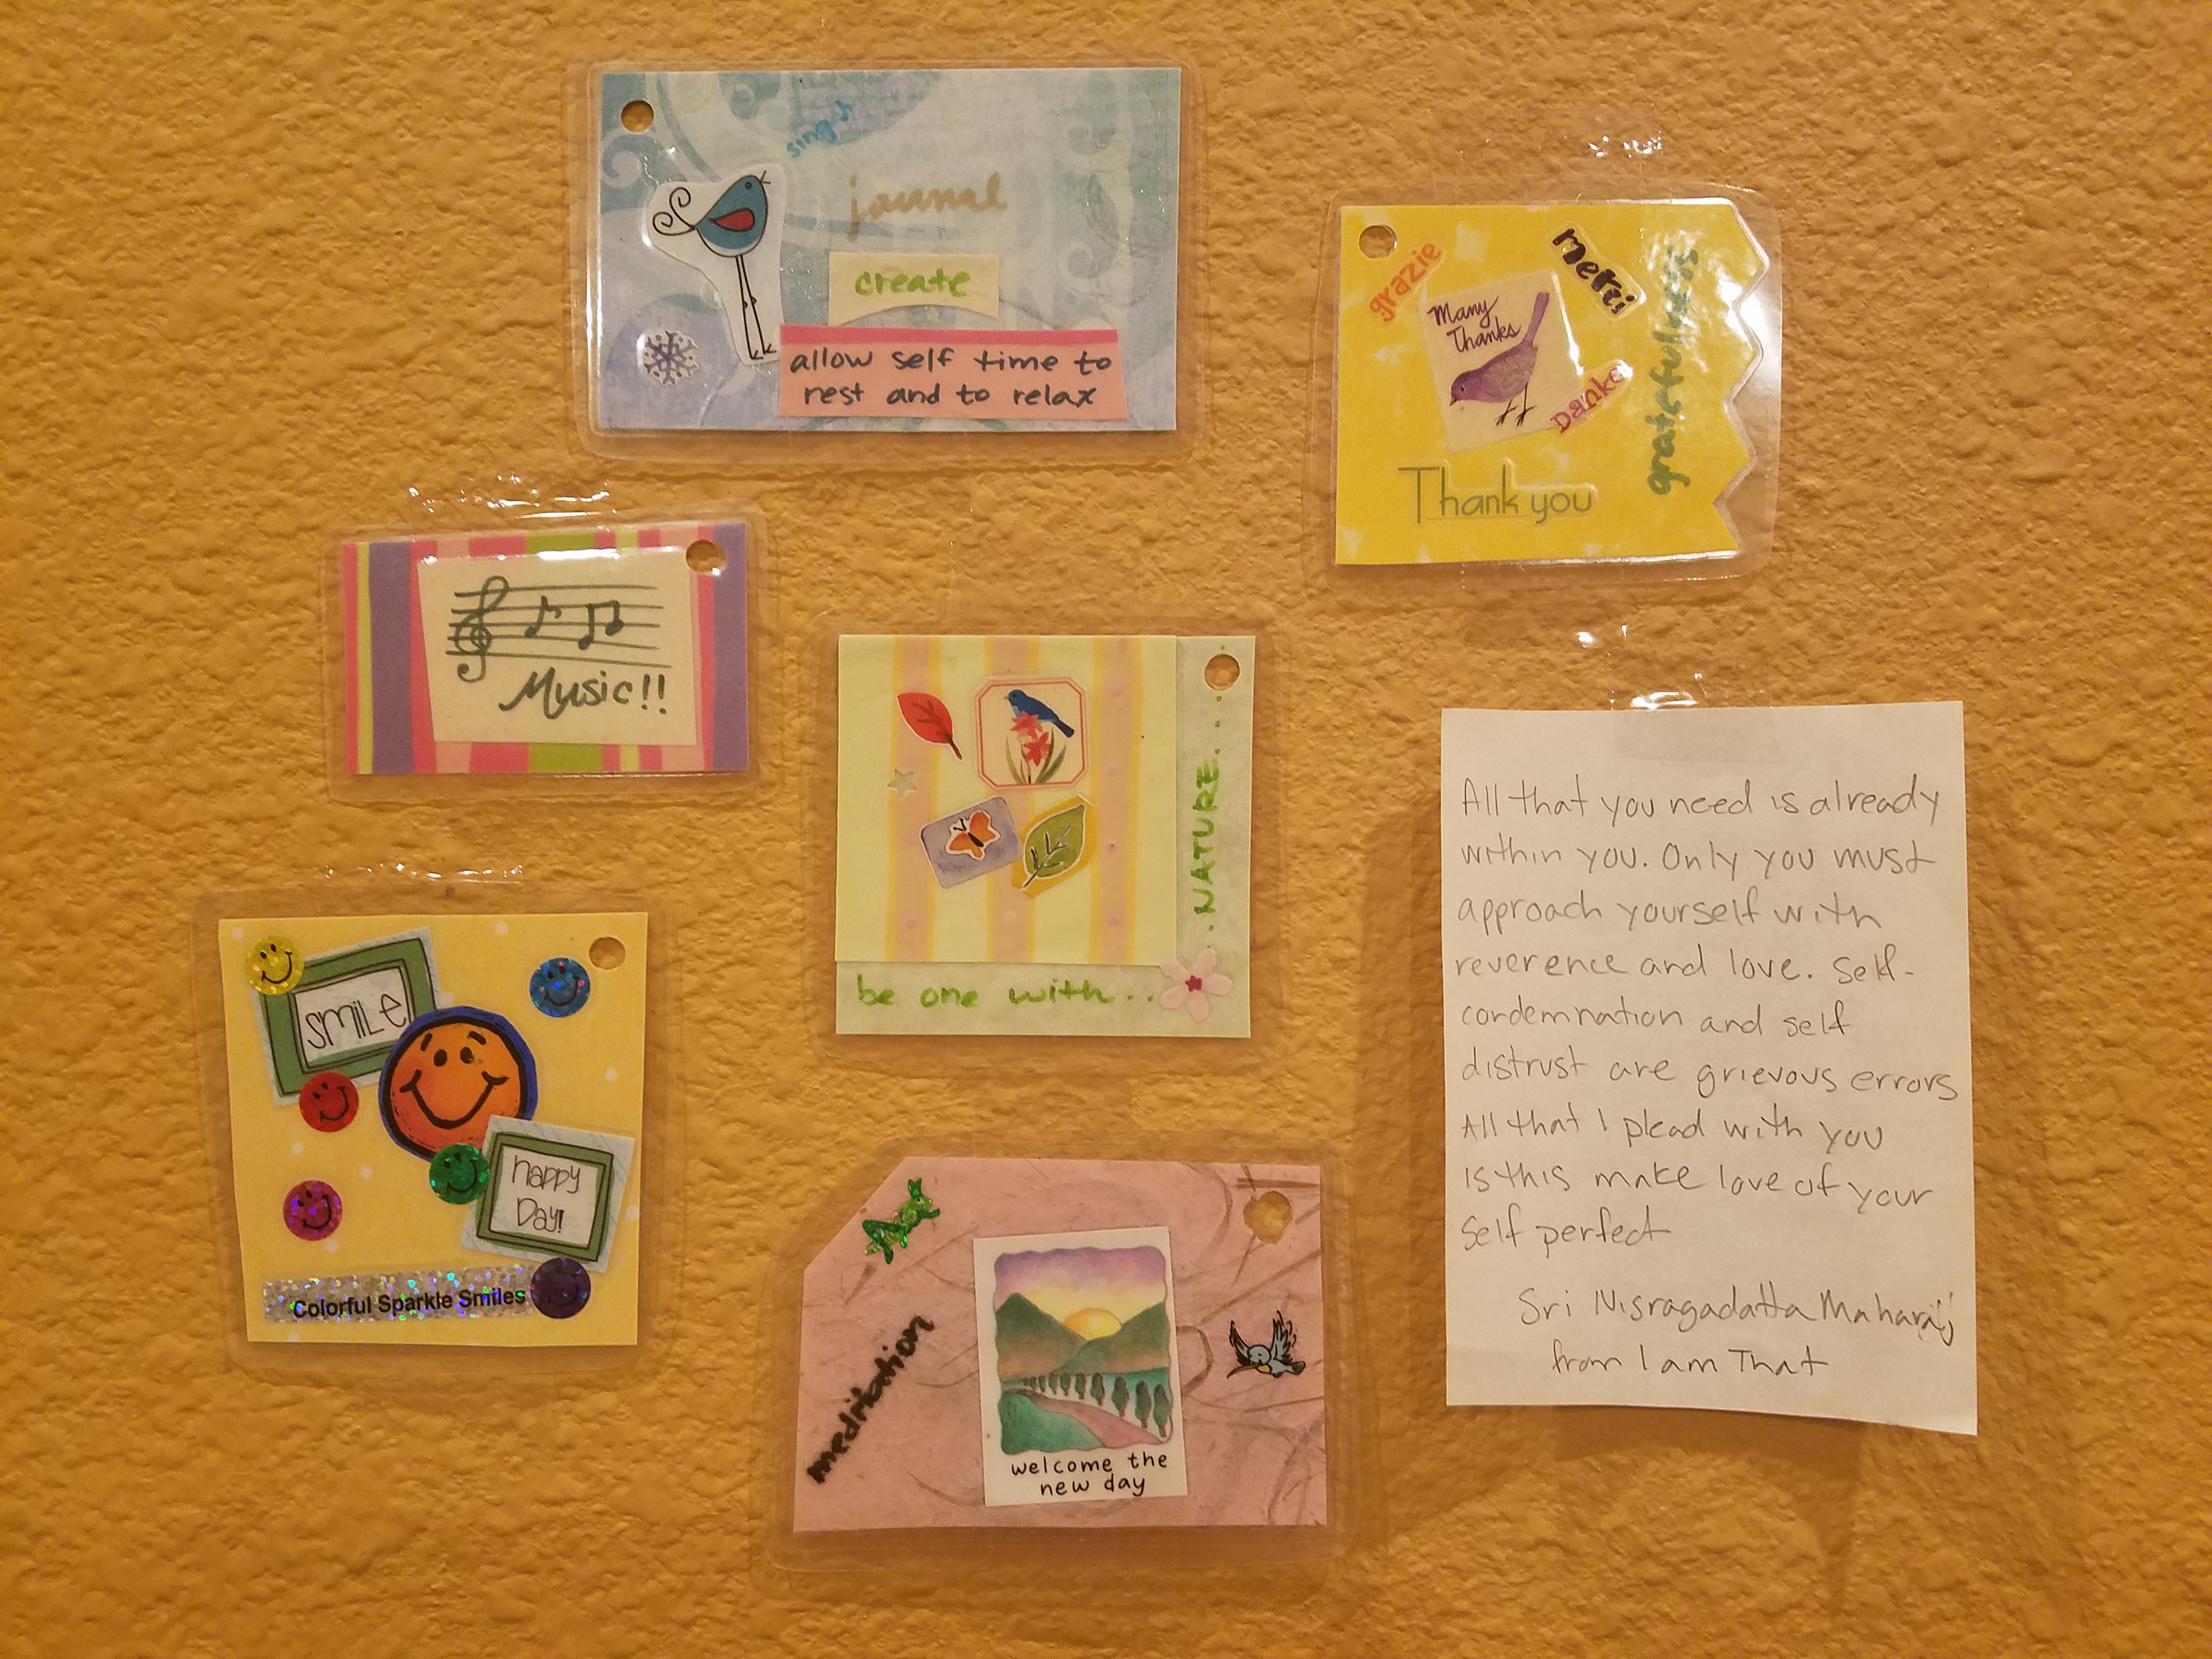 sing
journal
create
allow self time to
rest and to relax
grazie
merci
Many
Thanks
Danke
Thank you
gratefulness
Music!!
NATURE...
be one with...
SMiLE
happy
Day!
Colorful Sparkle Smiles
meditation
welcome the
new day
All that you need is already
within you. Only you must
approach yourself with
reverence and love. Self-
condemnation and self
distrust are grievous errors
All that I plead with you
is this make love of your
self perfect
Sri Nisragadatta Maharaj
from I am That